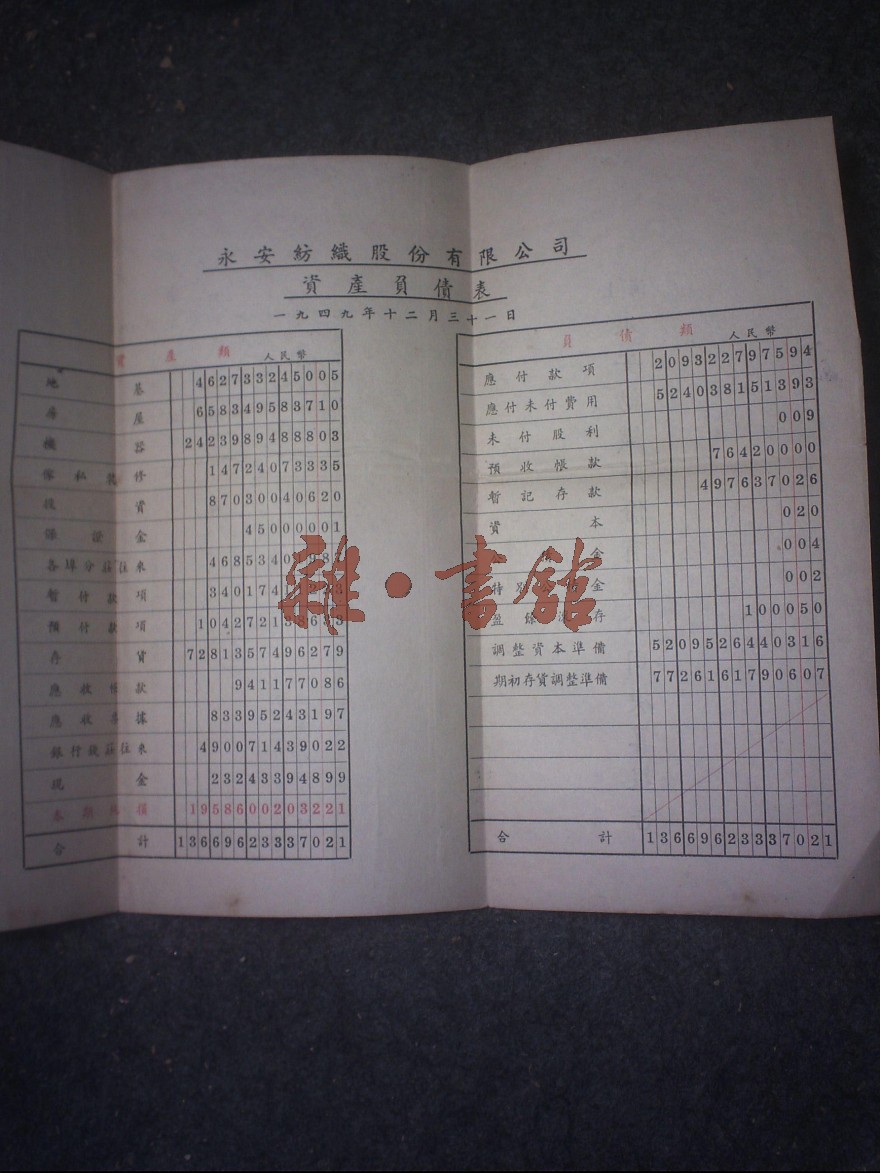 永安紡織股份有限公司
資產負債表
一九四九年十二月三十一日
資產類 人民幣
地基 462733245005
房屋 658349583710
機器 2423989488803
傢私裝修 14724073335
投資 87030040620
保證金 45000001
各埠分莊往來 4685340
暫付款項 340174
預付款項
存貨 7281357496279
應收帳款 941177086
應收票據 83395243197
銀行錢莊往來 490071439022
現金 232433948 99
本期純損 1958600203221
合計 136696233337021
負債類 人民幣
應付款項 209322797594
應付未付費用 524038151393
未付股利 009
預收帳款 76420000
暫記存款 497637026
資本 020
金 004
特別 金 002
盈餘滾存 100050
調整資本準備 520952644 0316
期初存貨調整準備 7726161790607
合計 136696233337021
雜·書館